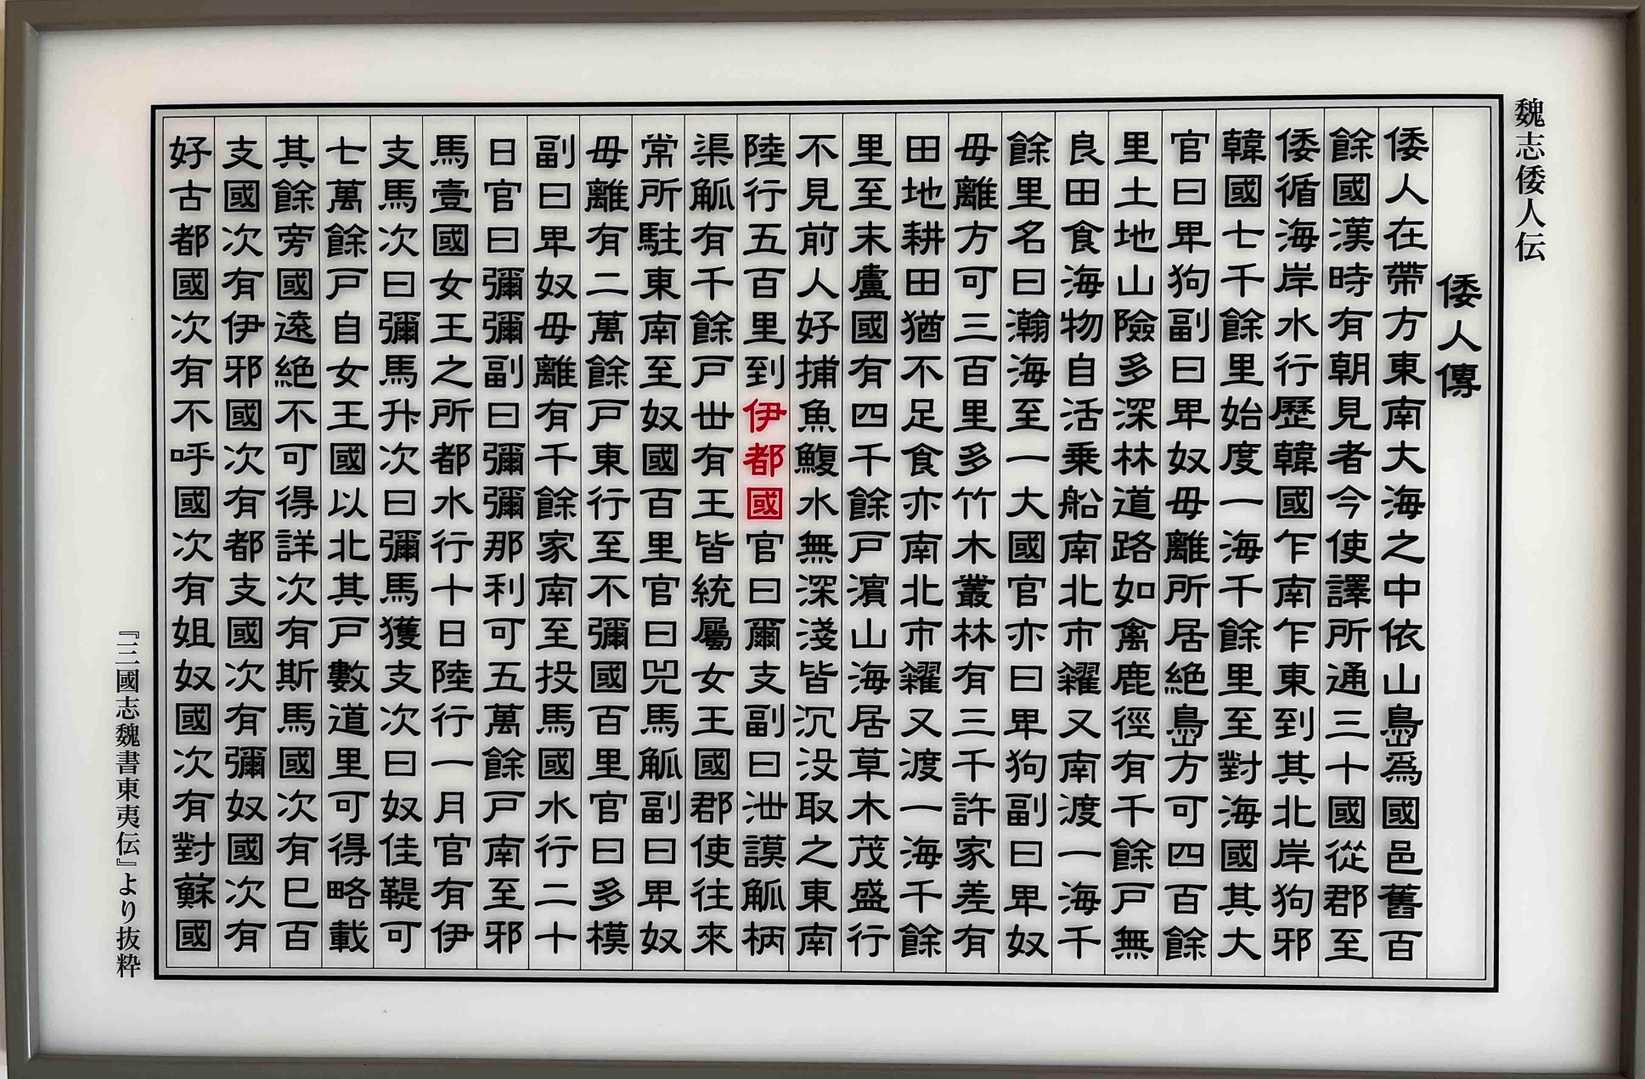 魏志倭人伝
倭人傳
倭人在帶方東南大海之中依山島爲國邑舊百
餘國漢時有朝見者今使譯所通三十國從郡至
倭循海岸水行歷韓國乍南乍東到其北岸狗邪
韓國七千餘里始度一海千餘里至對海國其大
官曰卑狗副曰卑奴毋離所居絶島方可四百餘
里土地山險多深林道路如禽鹿徑有千餘戸無
良田食海物自活乗船南北市糴又南渡一海千
餘里名曰瀚海至一大國官亦曰卑狗副曰卑奴
毋離方可三百里多竹木叢林有三千許家差有
田地耕田猶不足食亦南北市糴又渡一海千餘
里至末盧國有四千餘戸濵山海居草木茂盛行
不見前人好捕魚鰒水無深淺皆沉没取之東南
陸行五百里到伊都國官曰爾支副曰泄謨觚柄
渠觚有千餘戸丗有王皆統屬女王國郡使往來
常所駐東南至奴國百里官曰兕馬觚副曰卑奴
毋離有二萬餘戸東行至不彌國百里官曰多模
副曰卑奴毋離有千餘家南至投馬國水行二十
日官曰彌彌副曰彌彌那利可五萬餘戸南至邪
馬壹國女王之所都水行十日陸行一月官有伊
支馬次曰彌馬升次曰彌馬獲支次曰奴佳鞮可
七萬餘戸自女王國以北其戸數道里可得略載
其餘旁國遠絶不可得詳次有斯馬國次有巳百
支國次有伊邪國次有都支國次有彌奴國次有
好古都國次有不呼國次有姐奴國次有對蘇國
『三國志魏書東夷伝』より抜粋